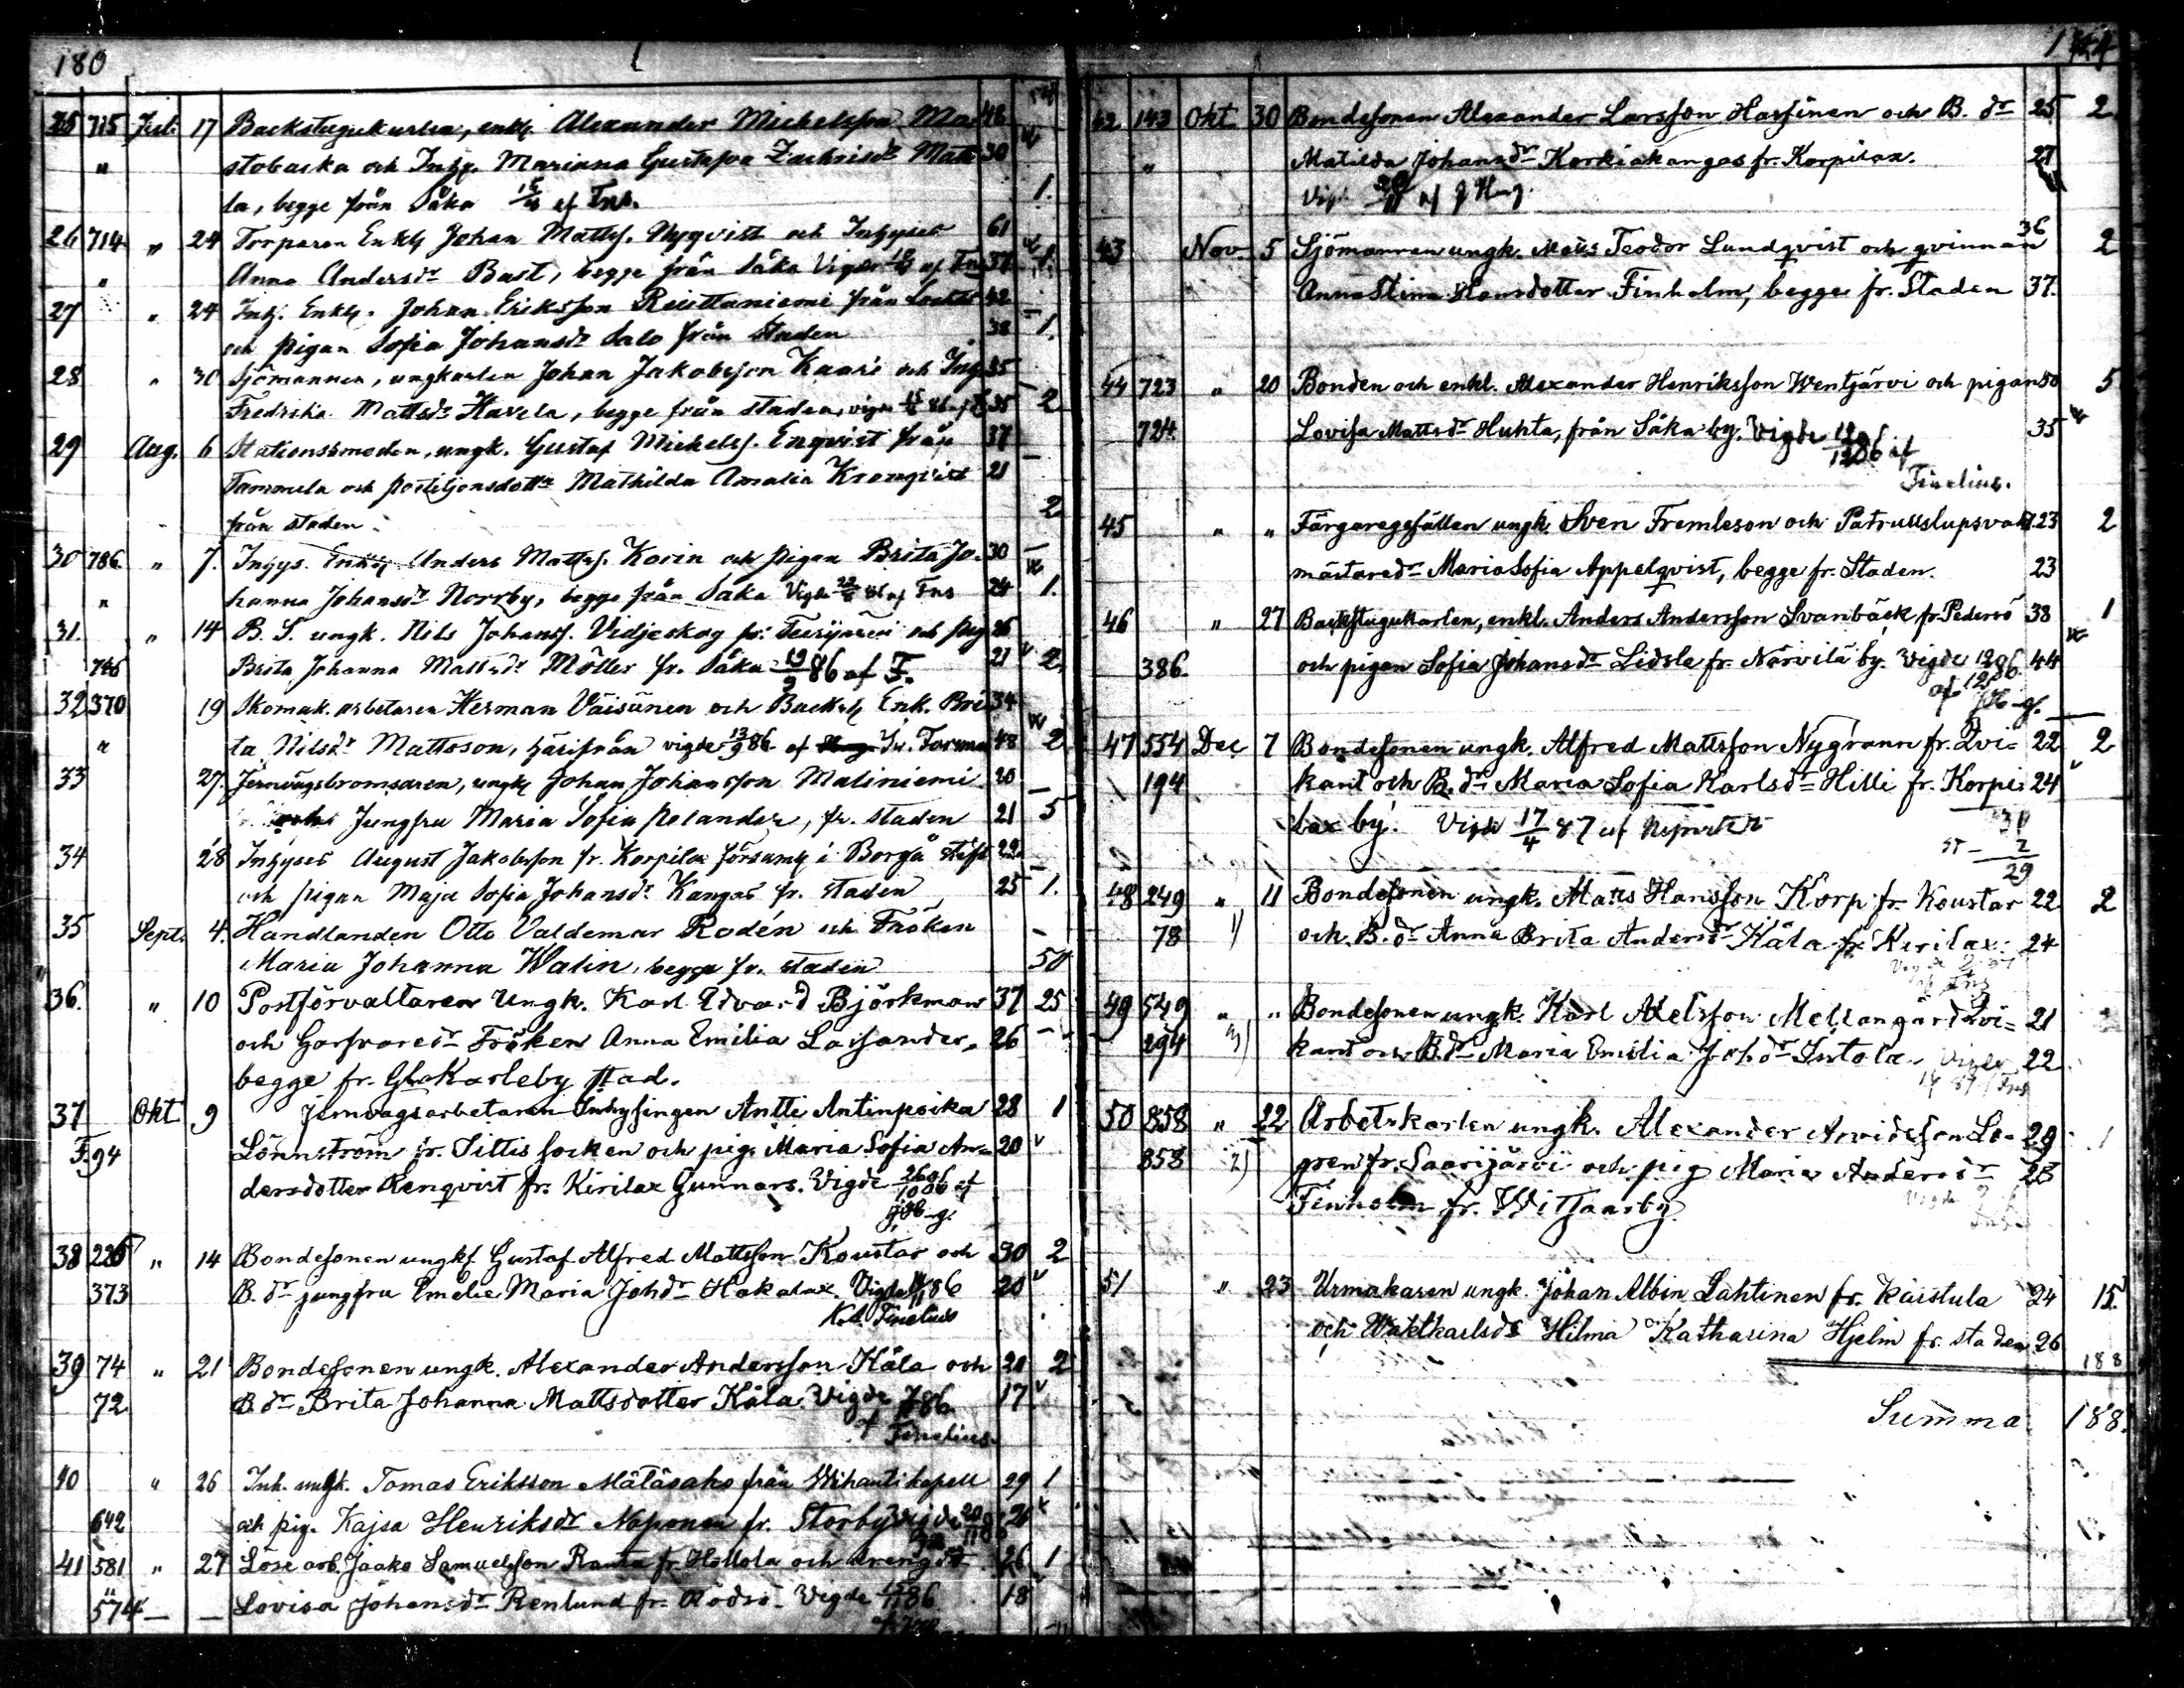 180
25 715 Juli 17 Backstugukarlen, enkl. Alexander Michelsson Ma- 48
" stobacka och Inhys. Mariana Gustafva Zachrisdr Matt- 30
la, begge från Såka af Fns. 1.
26 714 " 24 Torparen Enkl. Johan Mattss. Nyqvist och Inhyses 61
" Anna Andersdr Bast, begge från Såka Vigde af Fns 37 1.
27 " 24 Inh. Enkl. Johan Eriksson från 42
och pigan Sofia Johansdr Salo från staden 38 1.
28 " 30 Sjömannen, ungkarlen Johan Jakobsson Kaari och Inh. 35
Fredrika Mattsdr Havela, begge från staden, vigde 86 35 2
29 Aug. 6 Stationssmeden, ungk. Gustaf Mickelss. Enqvist från 37
Tammela och postiljonsdottr Mathilda Amalia Kronqvist 21
från staden 2
30 786 " 7. Inhys. Enkl. Anders Mattss. Korin och pigan Brita Jo- 30
" hanna Johansdr Norrby, begge från Såka Vigde 86 af Fns 24 1.
31 " 14 B. S. ungk. Nils Johanss. Vidjeskog fr. Terijärvi och pig 26
746 Brita Johanna Mattsdr Möller fr. Såka 19/9 86 af F. 21 2
32 370 19 Skomak. arbetaren Herman Väisänen och Backst. Enk. Bri- 34
" ta Nilsdr Mattsson, härifrån vigde 13/9 86 af 48 2
33 27. Jernvägsbromsaren, ungk. Johan Johansson Maliniemi 20
och Jungfru Maria Sofia Polander, fr. staden 21 5
34 28 Inhyses August Jakobsson fr. Korpilax församl. i Borgå stift 22
och pigan Maja Sofia Johansdr Kangas fr. staden 25 1.
35 Sept. 4. Handlanden Otto Valdemar Rodén och Fröken
Maria Johanna Walin, begge fr. staden 50
36. " 10 Postförvaltaren Ungk. Karl Edvard Björkman 37 25
och Garfvaredr Fröken Anna Emilia Lassander, 26
begge fr. Gl.Karleby stad.
37 Okt 9 Jernvägsarbetaren Inhysingen Antti Antinpoika 28 1
F. 94 Lönnström fr. Sittis socken och pig. Maria Sofia An- 20
dersdotter Renqvist fr. Kirilax Gunnars. Vigde 26/10 86 af
38 226 " 14 Bondesonen ungk. Gustaf Alfred Mattsson Koustar och 30 2
373 B. dr jungfru Emelie Maria Johdr Hakalax. Vigde 86 20
K.A. Finelius
39 74 " 21 Bondesonen ungk. Alexander Andersson Kåla och 20 2
72 B. dr Brita Johanna Mattsdotter Kåla. Vigde 86 17
af Finelius.
40 " 26 Inh. ungk. Tomas Eriksson Mätäsaho från Wihanti kapell 29 1
642 och pig. Kajsa Henriksdr Naponen fr. Storby vigde 26
41 581 " 27 Löse arb. Jaako Samuelsson Ranta fr. Hollola och drengdr 26 1
574 — — Lovisa Johansdr Renlund fr. Rödsö - Vigde 86 18
42 143 Okt 30 Bondesonen Alexander Larsson Hassinen och B. dr 25 2
" Matilda Johansdr Korkiakangas fr. Korpilax. 27
Vigd.
43 Nov. 5 Sjömannen ungk. Mats Teodor Lundqvist och qvinnan 36 2
Anna Stina Hansdotter Finholm, begge fr. Staden 37.
44 723 " 20 Bonden och enkl. Alexander Henriksson Wentjärvi och pigan 50 5
724 Lovisa Mattsdr Huhta, från Såka by. Vigde 12/12 86 af 35
Finelius.
45 " " Färgaregesällen ungk. Sven Fremleson och Patrullslupsvakt 23 2
mästaredr Maria Sofia Appelqvist, begge fr. Staden. 23
46 " 27 Backstugukarlen, enkl. Anders Andersson Svanbäck fr. Pedersö 38 1
386. och pigan Sofia Johansdr Lidsle fr. Närvilä by. Vigde 44
47 554 Dec. 7 Bondesonen ungk. Alfred Mattsson Nygrann fr. Qvi- 22 2
194 kant och B. dr Maria Sofia Karlsdr Hilli fr. Korpi- 24
lax by. Vigde 17/4 87 af
2
29
48 249 " 11 Bondesonen ungk. Matts Hansson Korp fr. Koustar 22 2
78 1) och B. dr Anna Brita Andersdr Kåla fr. Kirilax. 24
49 549 " " Bondesonen ungk. Karl Axelsson Mellangård Qvi- 21
294 3) kant och B. dr Maria Emilia Johdr Intola. Vigde 22
50 858 " 22 Arbetskarlen ungk. Alexander Arvidsson Lo- 29 1
858 2) gren fr. Saarijärvi och pig Maria Andersdr 28
Finholm fr. Witsaarby.
51 " 23 Urmakaren ungk. Johan Albin Lahtinen fr. Käistula 24 15
och Waktkarlsdr Hilma Katharina Hjelm fr. staden 26
188
Summa 188.